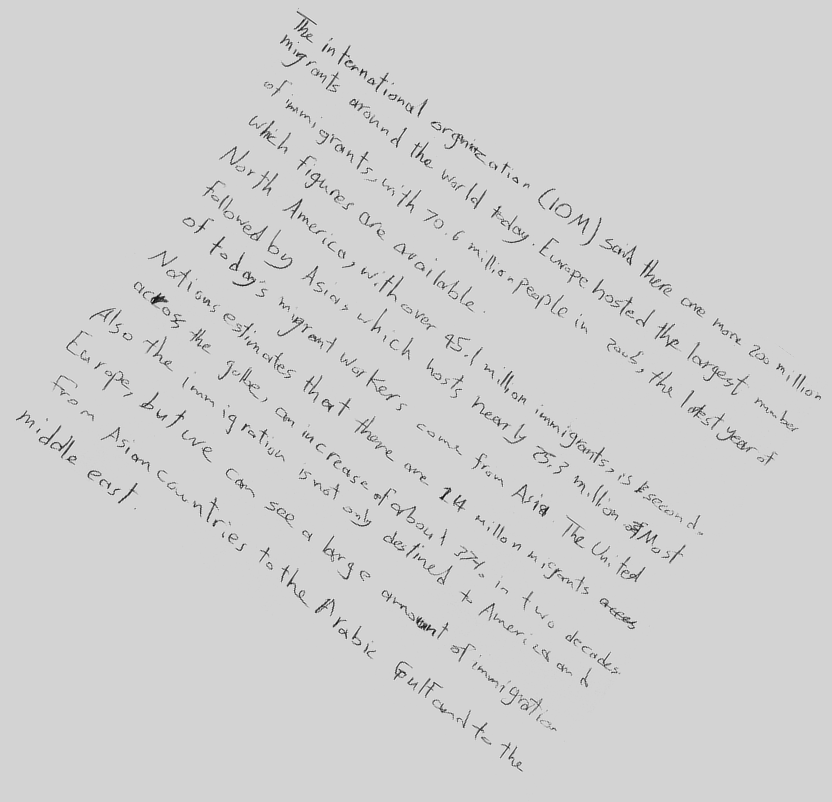 The international orgnization (IOM) said there are more 200 million
migrants around the world today. Europe hosted the largest number
of immigrants, with 70.6 million people in 2005, the latest year of
which figures are available.
North America, with over 45.1 million immigrants, is second.
Followed by Asia, which hosts nearly 25.3 million. Most
of today's migrant workers come from Asia. The United
Nations estimates that there are 14 millon migrants
across the golbe, an increase of about 37% in two decades
Also the immigration is not only destined to America and
Europe, but we can see a large amount of immigration
From Asian countries to the Arabic Gulf and to the
middle east.